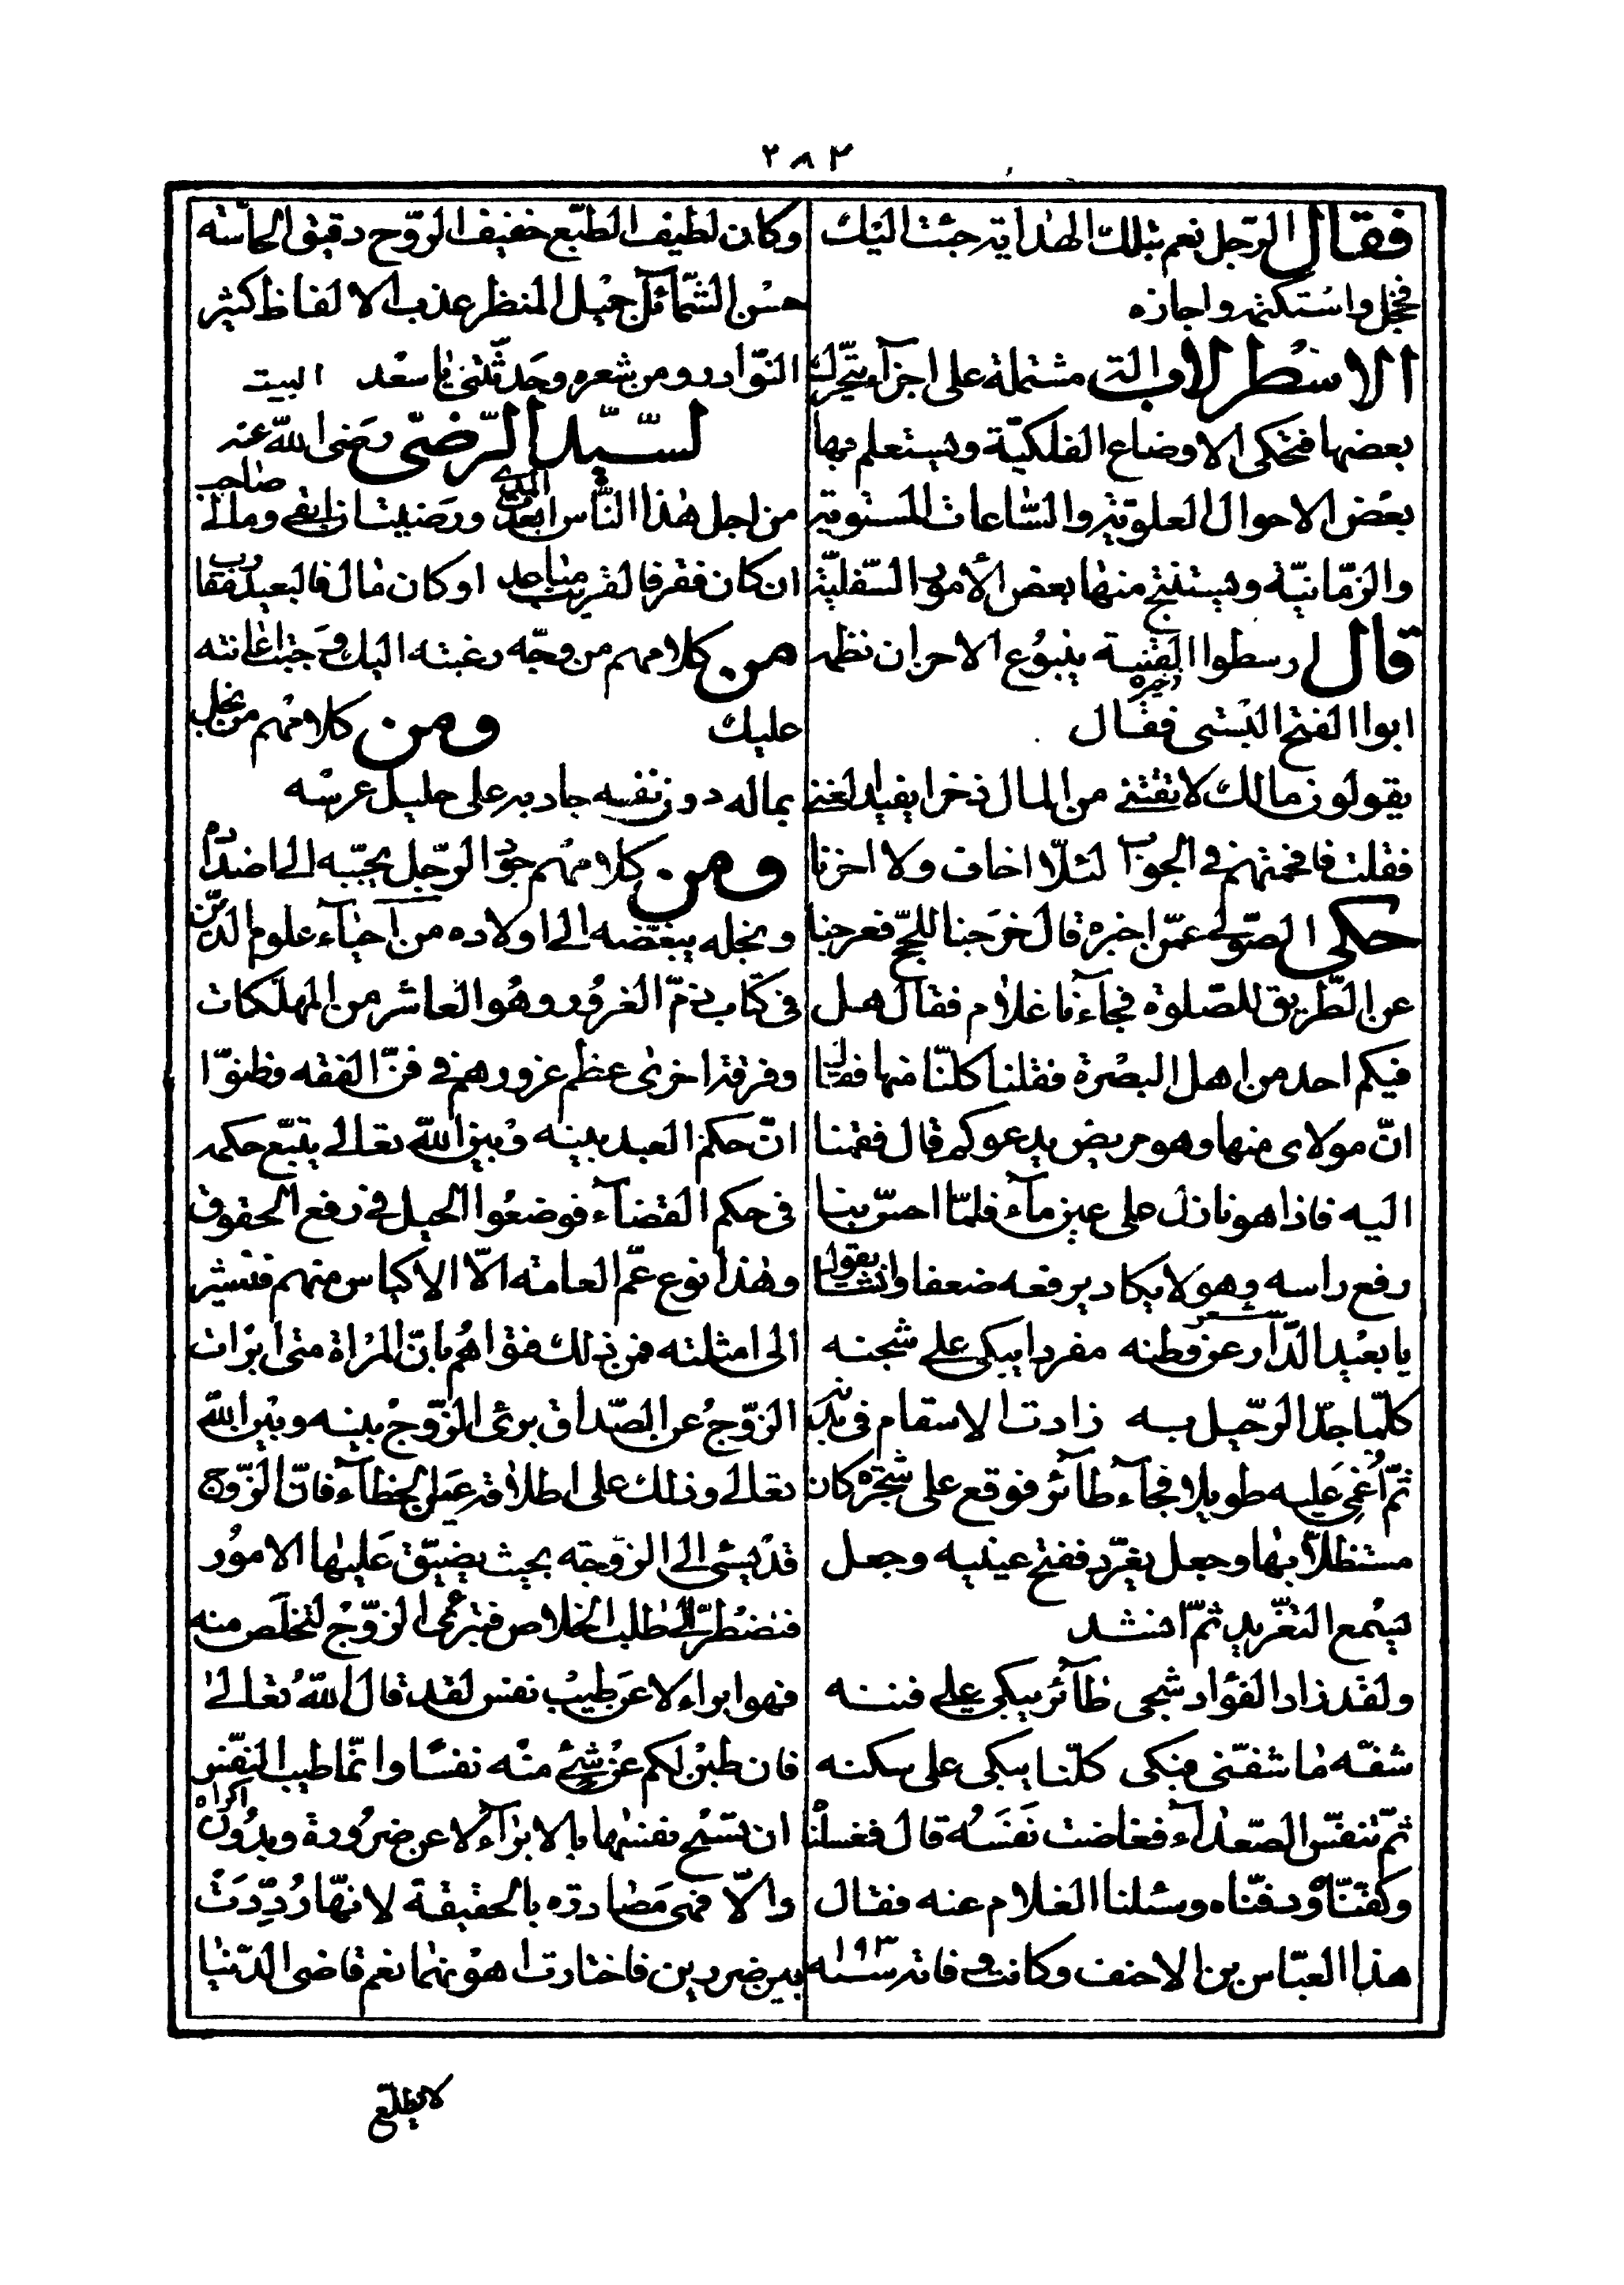 ٢٨٢
فقال الرّجل نعم بتلك الهداية جئت اليك
فخجل واستكثمه واجازه
الاسطرلاب الة مشتملة على اجزآء يتحرّك
بعضها فتحكى الاوضاع الفلكيّة ويستعلم بها
بعض الاحوال العلويّة والسّاعات المستوية
والزّمانيّة ويستنتج منها بعض الأمور السّفليّة
قال ارسطوا القنية ينبوع الاحزان نظمه
ابوا الفتح البستى فقال
يقولون مالك لا تقتنى من المال ذخرا يفيد الغنى
ذخيره
فقلت فافحمتهم فى الجواب لئلّا اخاف ولا احزنا
حكى الصّولى عمّن اخبره قال خرجنا للحجّ فعرجنا
عن الطّريق للصّلوة فجآءنا غلام فقال هل
فيكم احد من اهل البصرة فقلنا كلّنا منها فقال
انّ مولاى منها وهو مريض يدعوكم قال فقمنا
اليه فاذا هو نازل على عين مآء فلمّا احسّ بنا
رفع راسه وهو لا يكاد يرفعه ضعفا وانشا يقول
شعر
يا بعيد الدّار عن وطنه مفردا يبكى على شجنه
كلّما جدّ الرحيل به زادت الاسقام فى بدنه
ثمّ أغمى عليه طويلا فجآء طآئر فوقع على شجرة كان
مستظلّا بها وجعل يغرّد ففتح عينيه وجعل
يسمع التغريد ثمّ انشد
ولقد زاد الفؤاد شجى طآئر يبكى على فننه
شفّه ما شفّنى فبكى كلّنا يبكى على سكنه
ثمّ تنفّس الصّعدآء ففاضت نفسه قال فغسلنا
وكفنّاه ودفنّاه وسئلنا الغلام عنه فقال
هذا العبّاس بن الاحنف وكانت وفاته سنه ١٩٣
وكان لطيف الطّبع خفيف الرّوح دقيق الحاسّة
حسن الشّمآئل جميل المنظر عذب الالفاظ كثير
النّوادر ومن شعره وحدّثتنى يا سعد البيت
لسيّد الرّضىّ رضى الله عنه
من اجل هذا النّاس ابعدت المدى ورضيت ان ابقى ومالى صاحب
ان كان فقر فالقريب مباعد او كان مال فالبعيد مقارب
من كلامهم من وجّه رغبته اليك وجبت اعانته
عليك ومن كلامهم من بخل
بماله دون نفسه جاد به على حليل عرسه
ومن كلامهم جود الرّجل يحبّبه الى اضداده
وبخله يبغّضه الى اولاده من احيآء علوم الدّين
فى كتاب ذمّ الغرور وهو العاشر من المهلكات
وفرقة اخرى عظم غرورهم فى فنّ الفقه فظنوّا
انّ حكم العبد بينه وبين الله تعالى يتبّع حكمه
فى حكم القضآء فوضعوا الحيل فى رفع الحقوق
وهذا نوع عمّ العامة الّا الاكياس منهم فنشير
الى امثلته فمن ذلك فتواهم بانّ المراة متى ابرات
الزّوج عن الصّداق برئ الزّوج بينه وبين الله
تعالى وذلك على اطلاقه عين الخطآء فانّ الزّوج
قد يسئ الى الزوجة بحيث يضيّق عليها الامور
فتضطرّ الى طلب الخلاص فتبرئ الزّوج لتخلّص منه
فهو ابراء لا عن طيب نفس لقد قال الله تعالى
فان طبن لكم عن شئ منه نفسا وانّما طيب النّفس
ان تسمح نفسها بالابرآء لا عن ضرورة وبدون اكراه
والّا فهى مصادره بالحقيقة لانّها ردّدت
بين ضررين فاختارت اهونهما نعم قاضى الدّنيا
لا يطّلع